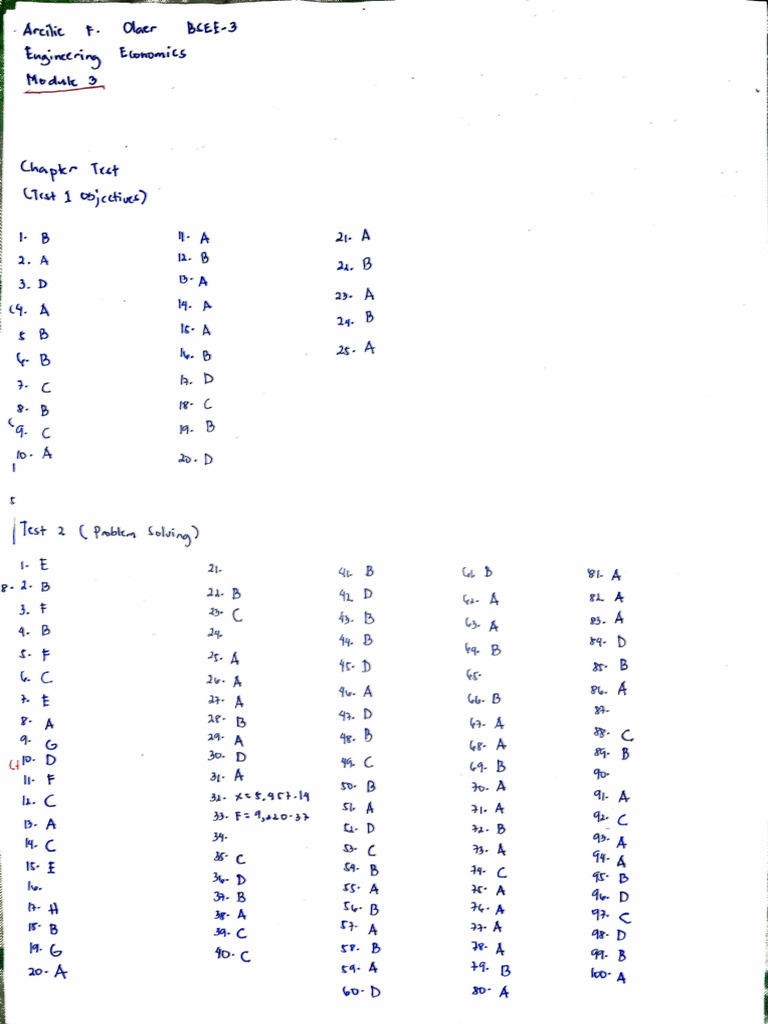 Arcilie F. Olaer BSEE-3
Engineering Economics
Module 3
Chapter Test
(Test 1 Objectives)
1. B
2. A
3. D
4. A
5 B
6. B
7. C
8. B
9. C
10. A
11. A
12. B
13. A
14. A
15. A
16. B
17. D
18. C
19. B
20. D
21. A
22. B
23. A
24. B
25. A
Test 2 (Problem Solving)
1. E
2. B
3. F
4. B
5. F
6. C
7. E
8. A
9. G
10. D
11. F
12. C
13. A
14. C
15. E
16.
17. H
18. B
19. G
20. A
21.
22. B
23. C
24.
25. A
26. A
27. A
28. B
29. A
30. D
31. A
32. x = 5,957.14
33. F = 9,220.37
34.
35. C
36. D
37. B
38. A
39. C
40. C
41. B
42. D
43. B
44. B
45. D
46. A
47. D
48. B
49. C
50. B
51. A
52. D
53. C
54. B
55. A
56. B
57. A
58. B
59. A
60. D
61. B
62. A
63. A
64. B
65.
66. B
67. A
68. A
69. B
70. A
71. A
72. B
73. A
74. C
75. A
76. A
77. A
78. A
79. B
80. A
81. A
82. A
83. A
84. D
85. B
86. A
87.
88. C
89. B
90.
91. A
92. C
93. A
94. A
95. B
96. D
97. C
98. D
99. B
100. A